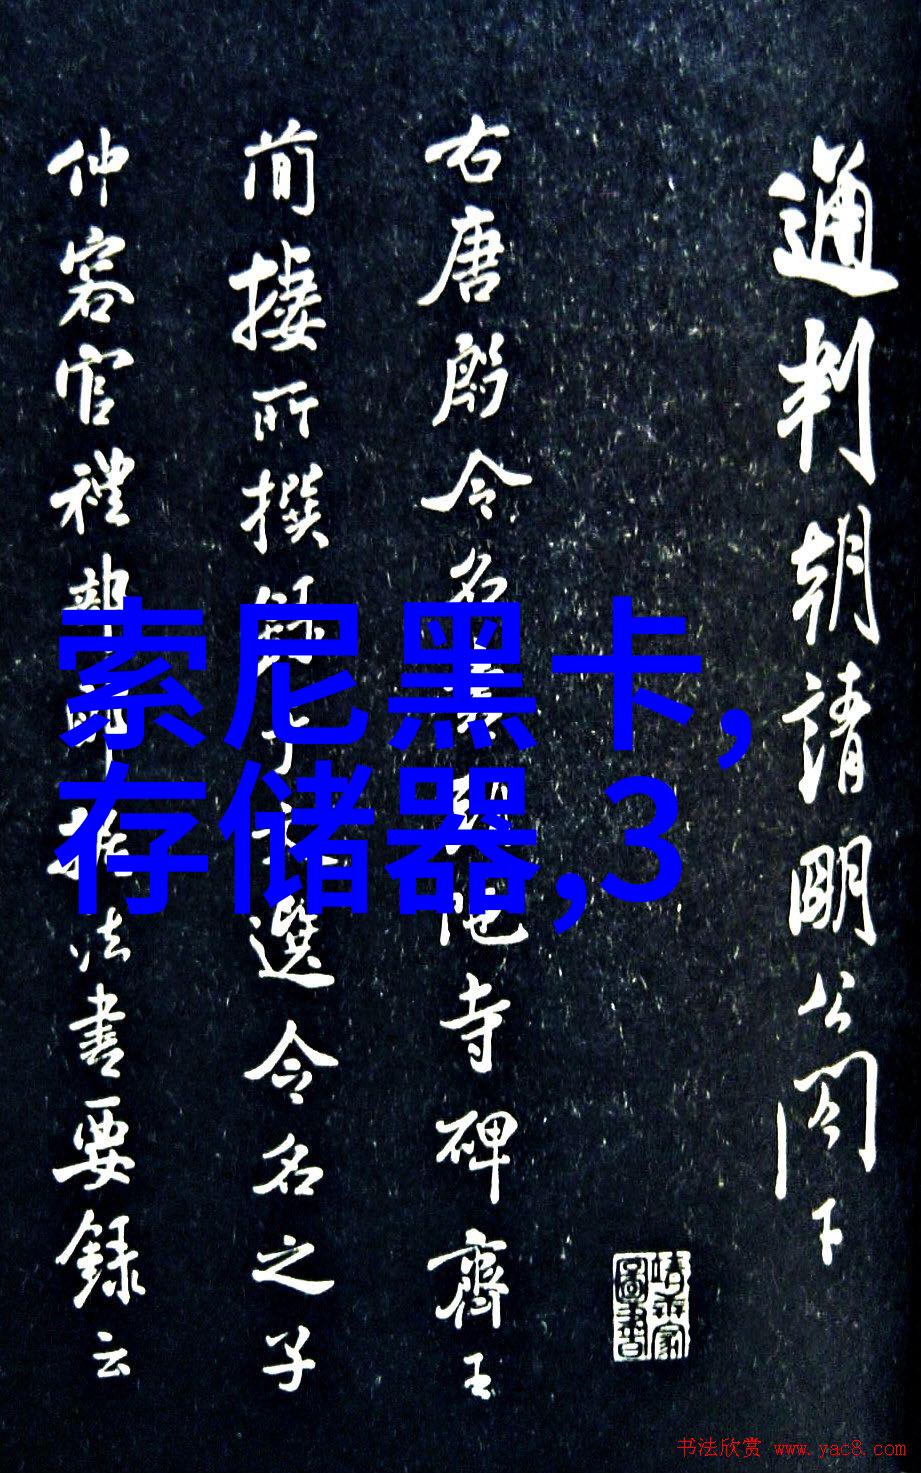 通判朝請明公閤下
右唐殷令名陀寺碑齊王
簡棲所撰選令名之子
仲容官禮部法書要録云
索尼黑卡,
存储器,3
书法欣赏 www.yac8.com